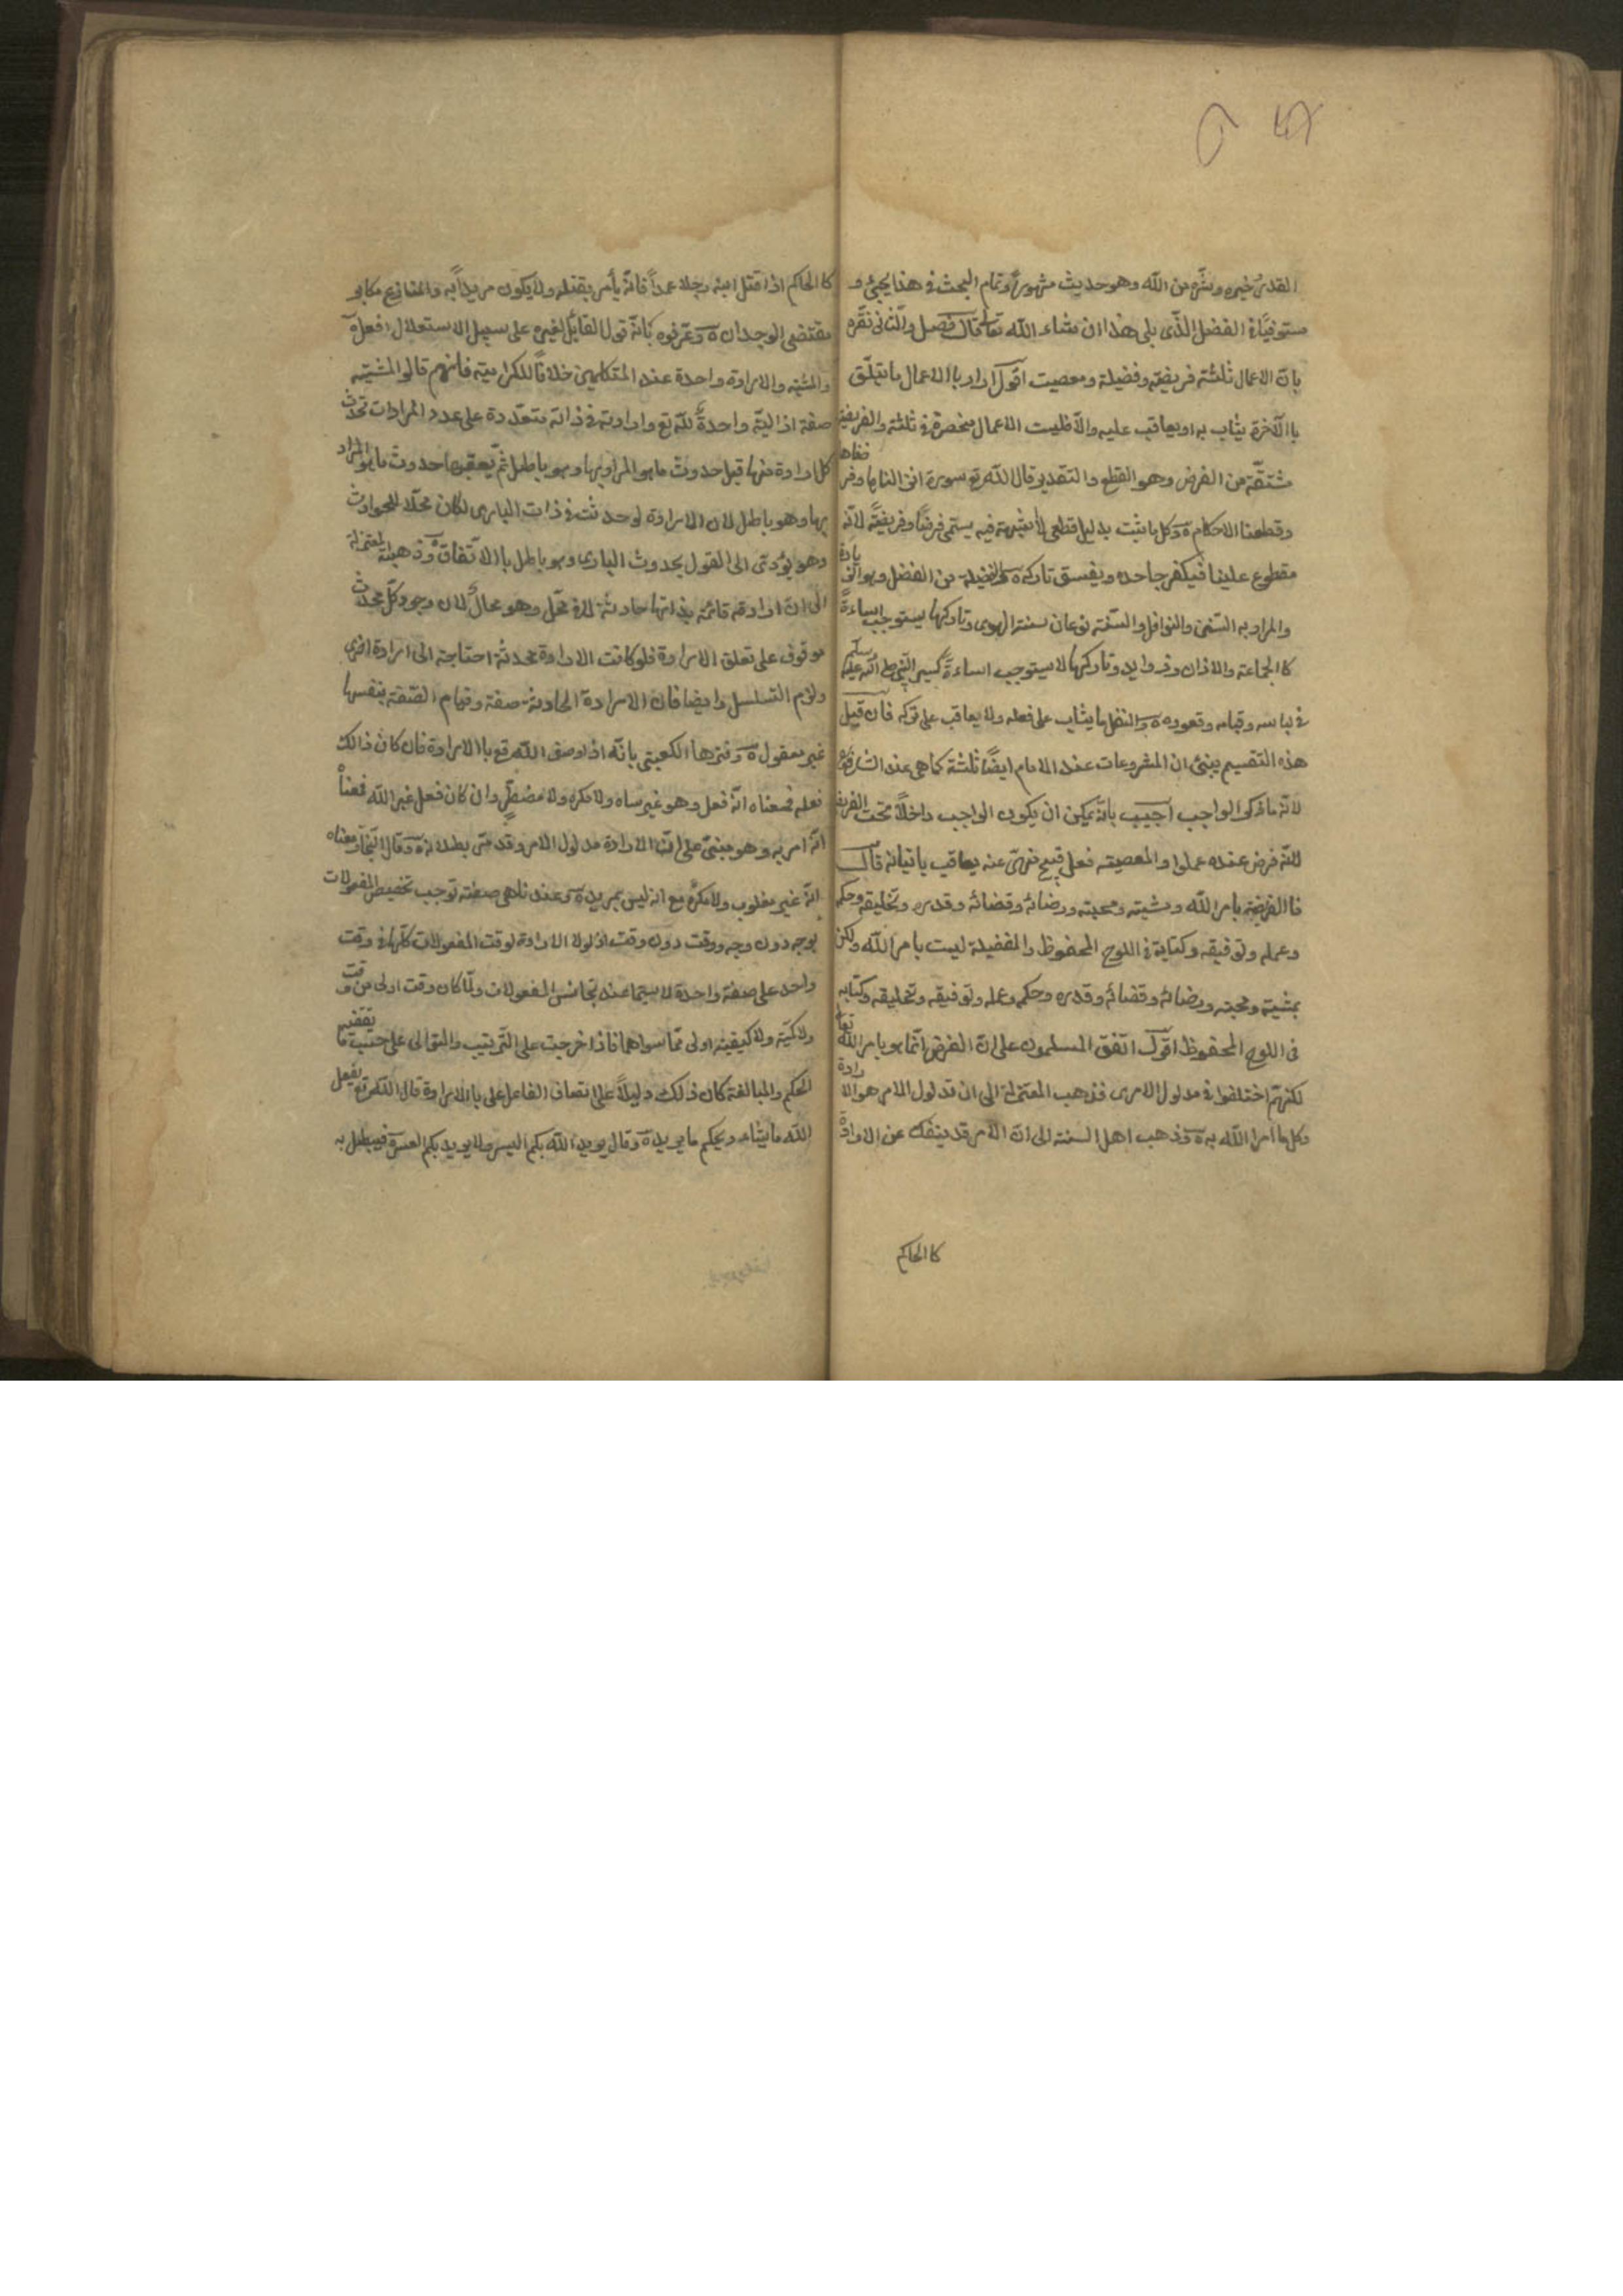 القدر خيره وشره من الله وهو حديث مشهور وتمام البحث في هذا يجئ و
مستوفيا في الفصل الذي يلى هذا ان شاء الله تعالى قال فصل والثاني نقره
بان الاعمال ثلثة فريضة وفضيلة ومعصيت اقول اراد باالاعمال ما يتعلق
باالآخرة يثاب به او يعاقب عليه والا فليست الاعمال منحصرة في ثلثة والفريضة
مشتقة من الفرض وهو القطع والتقدير قال الله تع سورة انزلناها وفرضناها
وقطعنا الاحكام وكل ما ثبت بدليل قطعي لا شبهة فيه يسمى فرضا وفريضة لانه
مقطوع علينا فيكفر جاحده ويفسق تاركه والفضيلة من الفضل وهو الزيادة
والمراد به السنن والنوافل والسنة نوعان سنة الهدى وتاركها يستوجب اساءة
كاالجماعة والاذان وزوايد وتاركها لا يستوجب اساءة كسير النبي صلى الله عليه وسلم
في لباسه وقيامه وقعوده والنفل ما يثاب على فعله ولا يعاقب على تركه فان قيل
هذه التقسيم ينبئ ان المشروعات عند الامام ايضا ثلثة كما هي عند الشافعي
لانه ما ذكر الواجب اجيب بانه يمكن ان يكون الواجب داخلا تحت الفريضة
لانه فرض عنده عملوا والمعصية فعل قبيح نهى عنه يعاقب باتيانه قال
فاالفريضة بامر الله ومشيته ومحبته ورضائه وقضائه وقدره وتخليقه وحكمه
وعمله وتوفيقه وكتابة في اللوح المحفوظ والفضيلة ليست بامر الله ولكن
بمشيته ومحبته ورضائه وقضائه وقدره وحكمه وعمله وتوفيقه وتخليقه وكتابه
في اللوح المحفوظ اقول اتفق المسلمون على ان الفرض انما هو بامر الله تعالى
لكنهم اختلفوا في مدلول الامر فذهب المعتزلة الى ان مدلول الامر هو الارادة
وكل ما امر الله به وذهب اهل السنة الى ان الامر قد ينفك عن الارادة
كا الحاكم
كا الحاكم اذا قتل ابنه رجلا عمدا فانه يأمر بقتله ولا يكون مريدا به والمنازع مكابر
مقتضى الوجدان وعرفوه بانه قول القائل لغيره على سبيل الاستعلال افعل
والمشية والارادة واحدة عند المتكلمين خلافا للكرامية فانهم قالوا المشية
صفة ازالية واحدة لله تع وارادته في ذاته متعددة على عدد المرادات تحدث
كل ارادة منها قبل حدوث ما هو المراد بها وهو باطل ثم يعقبها حدوث ما هو المراد
بها وهو باطل لان الارادة لو حدثت في ذات البارى لكان محلا للحوادث
وهو يؤدى الى القول بحدوث البارى وهو باطل باالاتفاق وذهبت المعتزلة
الى ان ارادته قائمة بذاتها حادثة لا في محل وهو محال لان وجود كل محدث
موقوف على تعلق الارادة فلو كانت الارادة محدثة احتاجة الى ارادة اخرى
ولزم التسلسل وايضا فان الارادة الحادثة صفة وقيام الصفة بنفسها
غير معقول وفسرها الكعبى بانه اذا وصف الله تع باالارادة فان كان ذالك
فعله فمعناه انه فعل وهو غير ساه ولا مكره ولا مضطر وان كان فعل غير الله فمعناه
انه امر به وهو مبنى على ان الارادة مدلول الامر وقد مر بطلانه وقال النجار معناه
انه غير مغلوب ولا مكره مع انه ليس بمريد وعندنا هى صفة توجب تخصيص المفعولات
بوجه دون وجه ووقت دون وقت اذ لولا الارادة لوقت المفعولات كلها في وقت
واحد على صفة واحدة لا سيما عند تجانس المفعولات ولما كان وقت اولى من وقت
ولا كمية ولا كيفية اولى مما سواهما فاذا خرجت على الترتيب والتوالى على حسب ما تقتضيه
الحكم والمبالغة كان ذلك دليلا على اتصاف الفاعل باالارادة قال الله تع يفعل
الله ما يشاء ويحكم ما يريد وقال يريد الله بكم اليسر ولا يريد بكم العسر فيبطل به